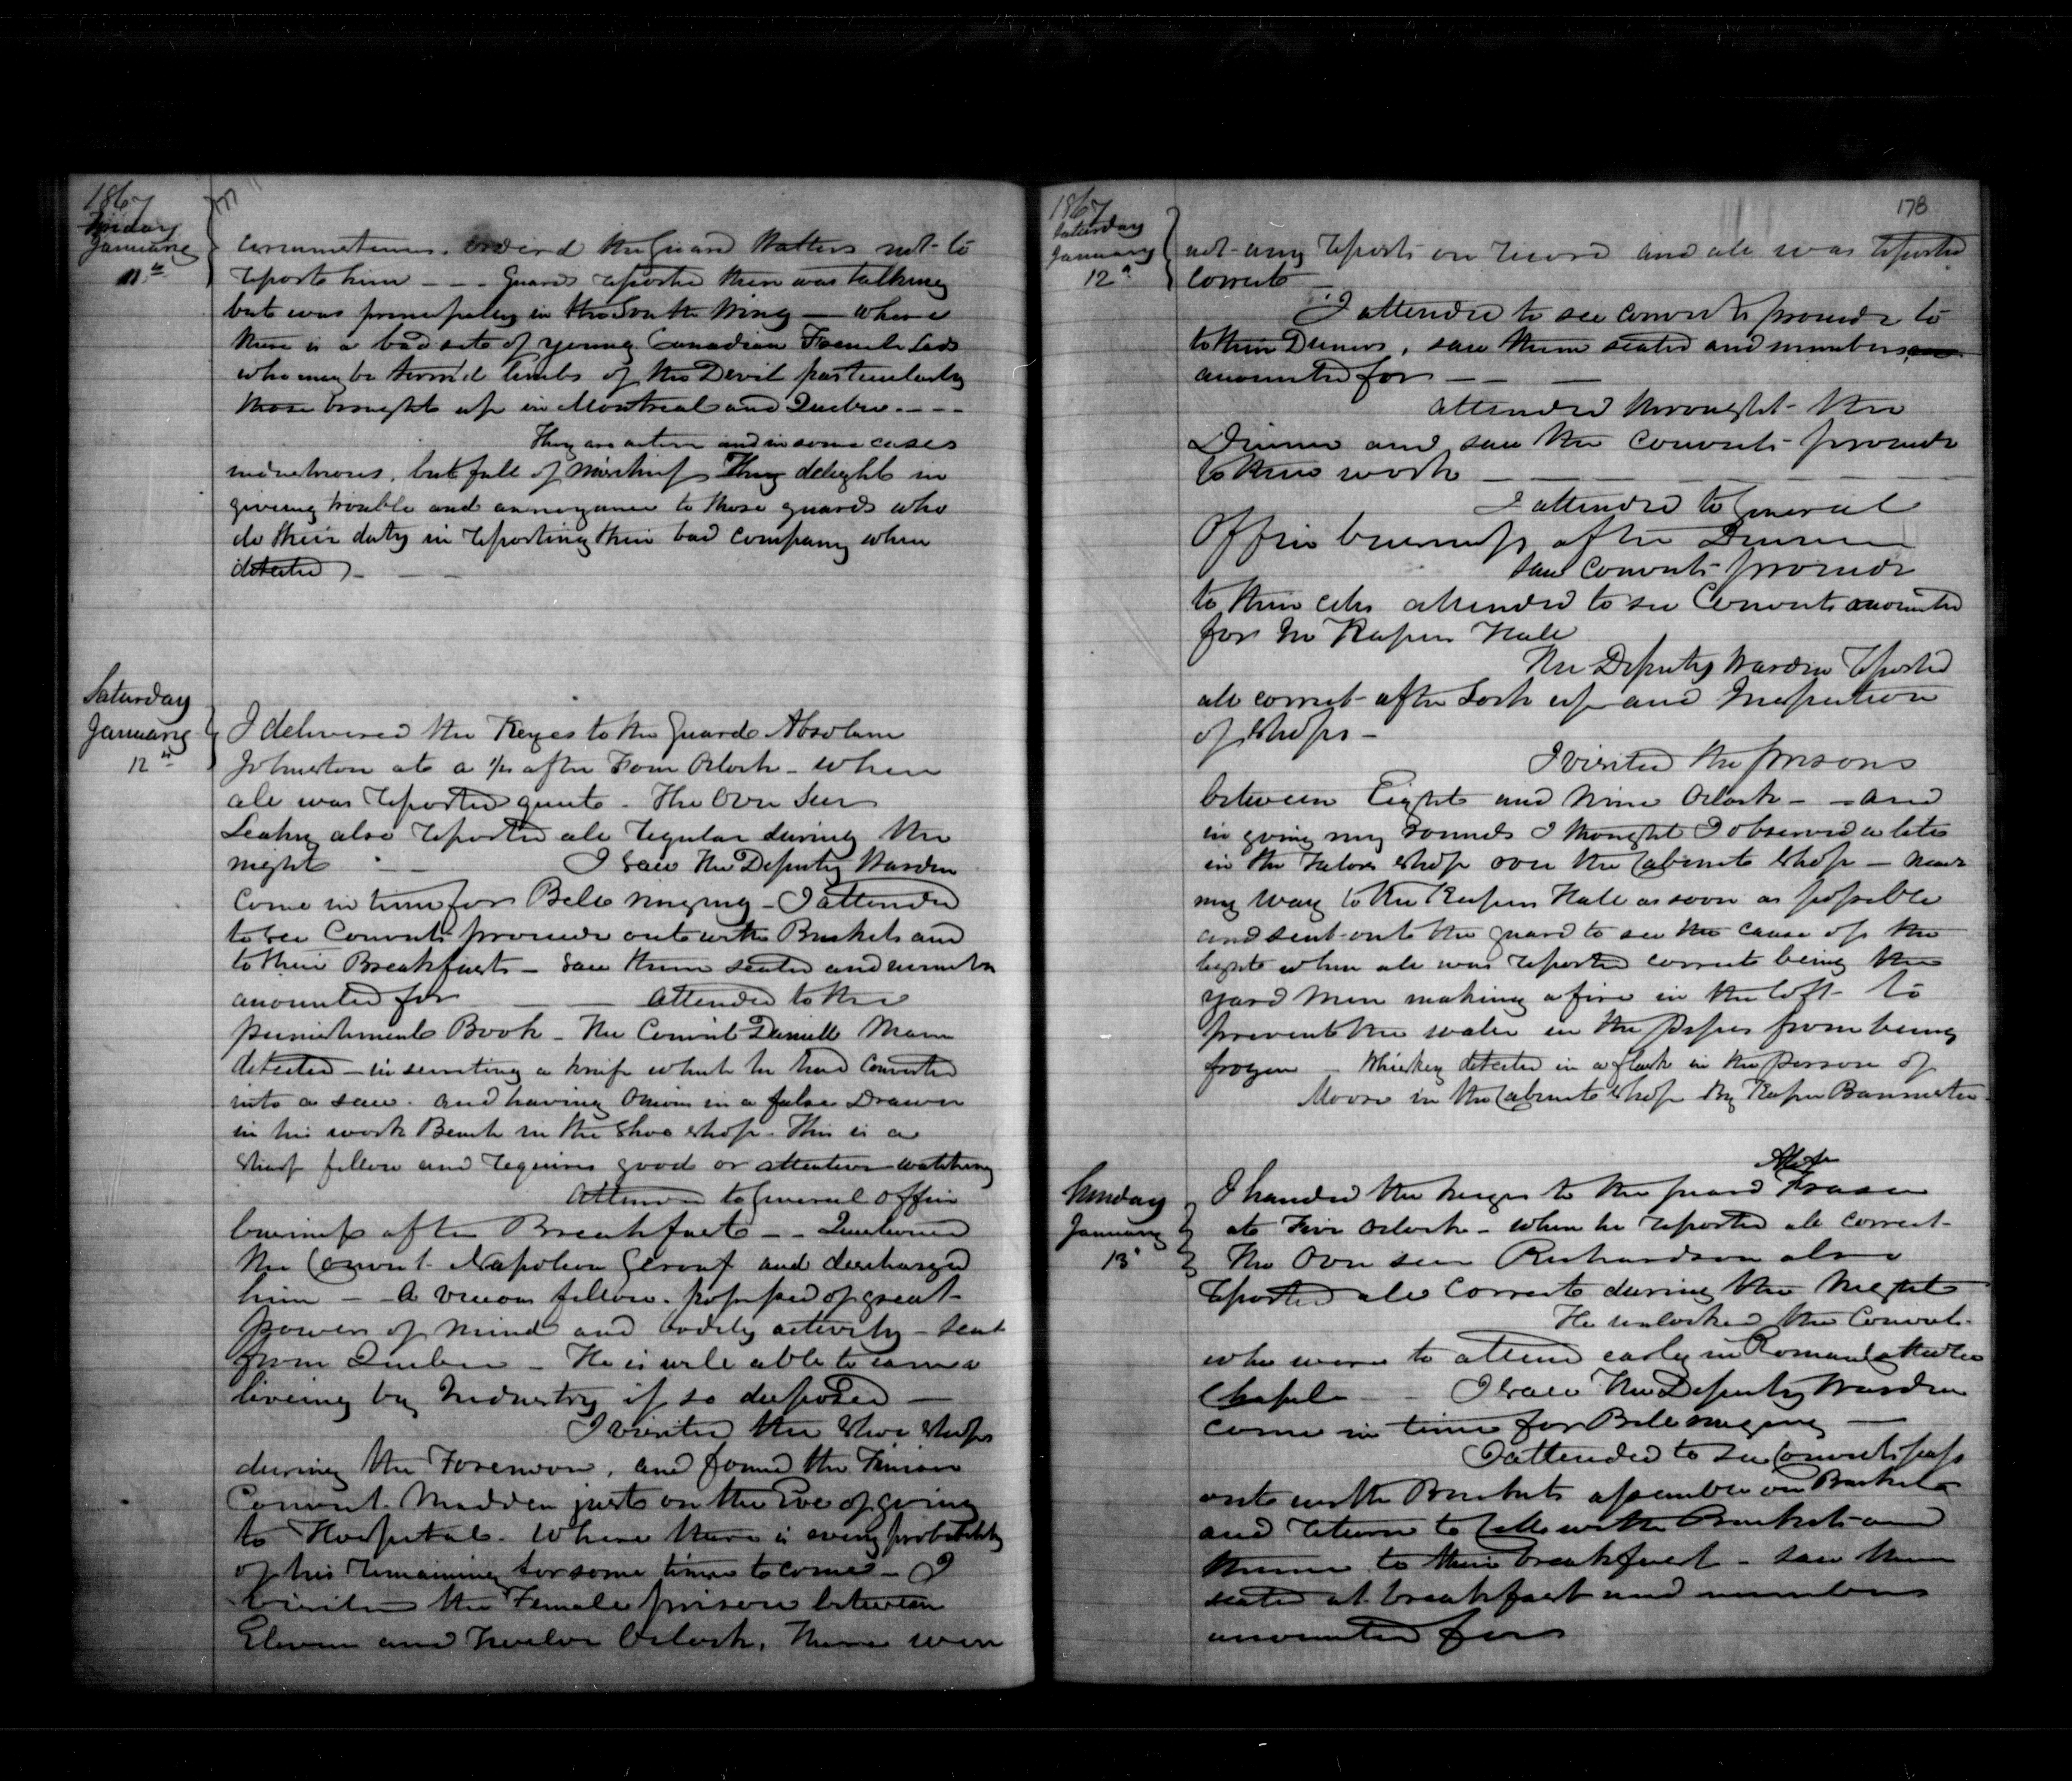 1867
Friday
January
11th
177
circumstances. Ordered the Guard Watters not to
report him - - - Guard reported there was talking
but was principally in the South Wing — where
there is a bad set of young Canadian French Lads
who may be term'd limbs of the Devil particularly
those brought up in Montreal and Quebec. - - -
They are active and in some cases
industrious, but full of mischief They delight in
giving trouble and annoyance to those guards who
do their duty in reporting their bad company when
detected - — —
Saturday
January
12th
I delivered the Keyes to the Guard Absolam
Johnston at a 1/4 after Four Oclock - when
all was reported quiete - The Over Seer
Leahy also reported all regular during the
night — I saw the Deputy Warden
Come in time for Bell ringing - I attended
to see Convicts proceede out with Buckets and
to their Breakfast - saw them seated and number
accounted for — — attended to the
punishment Book - The Convict Daniell Mann
detected - in secreting a knife which he had Converted
into a saw. and having Onions in a false Drawer
in his work Bench in the Shoe shop - This is a
sharp fellow and requires good or attentive watching
Attended to General Office
business after Breakfast - - Questioned
the Convict Napoleon and discharged
him - - A vicious fellow. possessed of great
powers of mind and bodily activity - sent
from Quebec - He is well able to earn a
liveing by Industry if so disposed —
I visited the Shoe Shops
during the Forenoon, and found the
Convict Madden just on the Eve of going
to Hospital. Where there is every probability
of his remaining for some time to come - I
visited the Female prison between
Eleven and Twelve Oclock, There were
1867
Saturday
January
12th
178
not any reports on record and all was reported
correct —
I attended to see convicts proceede to
to their Dinners, saw them seated and numbers
accounted for — — —
attended throught the
Dinner and saw the Convicts proceede
to their work — — — —
I attended to General
Office business after Dinner
saw Convicts proceede
to their cells attended to see Convicts accounted
for In Keepers Hall
The Deputy Warden reported
all correct after Lock up and Inspection
of Shops —
I visited the prisons
between Eight and Nine Oclock - - and
in going my rounds I thought I observed a lite
in the Tailors Shop over the Cabinet Shop — made
my way to the Keepers Hall as soon as possible
and sent out the guard to see the cause of the
light when all was reported correct being the
yard men making a fire in the loft to
prevent the water in the pipes from being
frozen - Whiskey detected in a flask in the person of
Moore in the Cabinet Shop By Keeper Bannister -
Sunday
January
13th
I handed the keyes to the guard Fraser
at Five Oclock - when he reported all correct -
The Over seer Richardson also
reported all Correct during the Night
He unlocked the Convicts
who were to attend early in Roman Catholic
Chapel — I saw the Deputy Warden
come in time for Bell ringing —
I attended to see Convicts pass
out with Buckets assemble on Buckets
and return to Cells with Buckets and
thence to their breakfast - saw them
seated at breakfast and numbers
accounted for